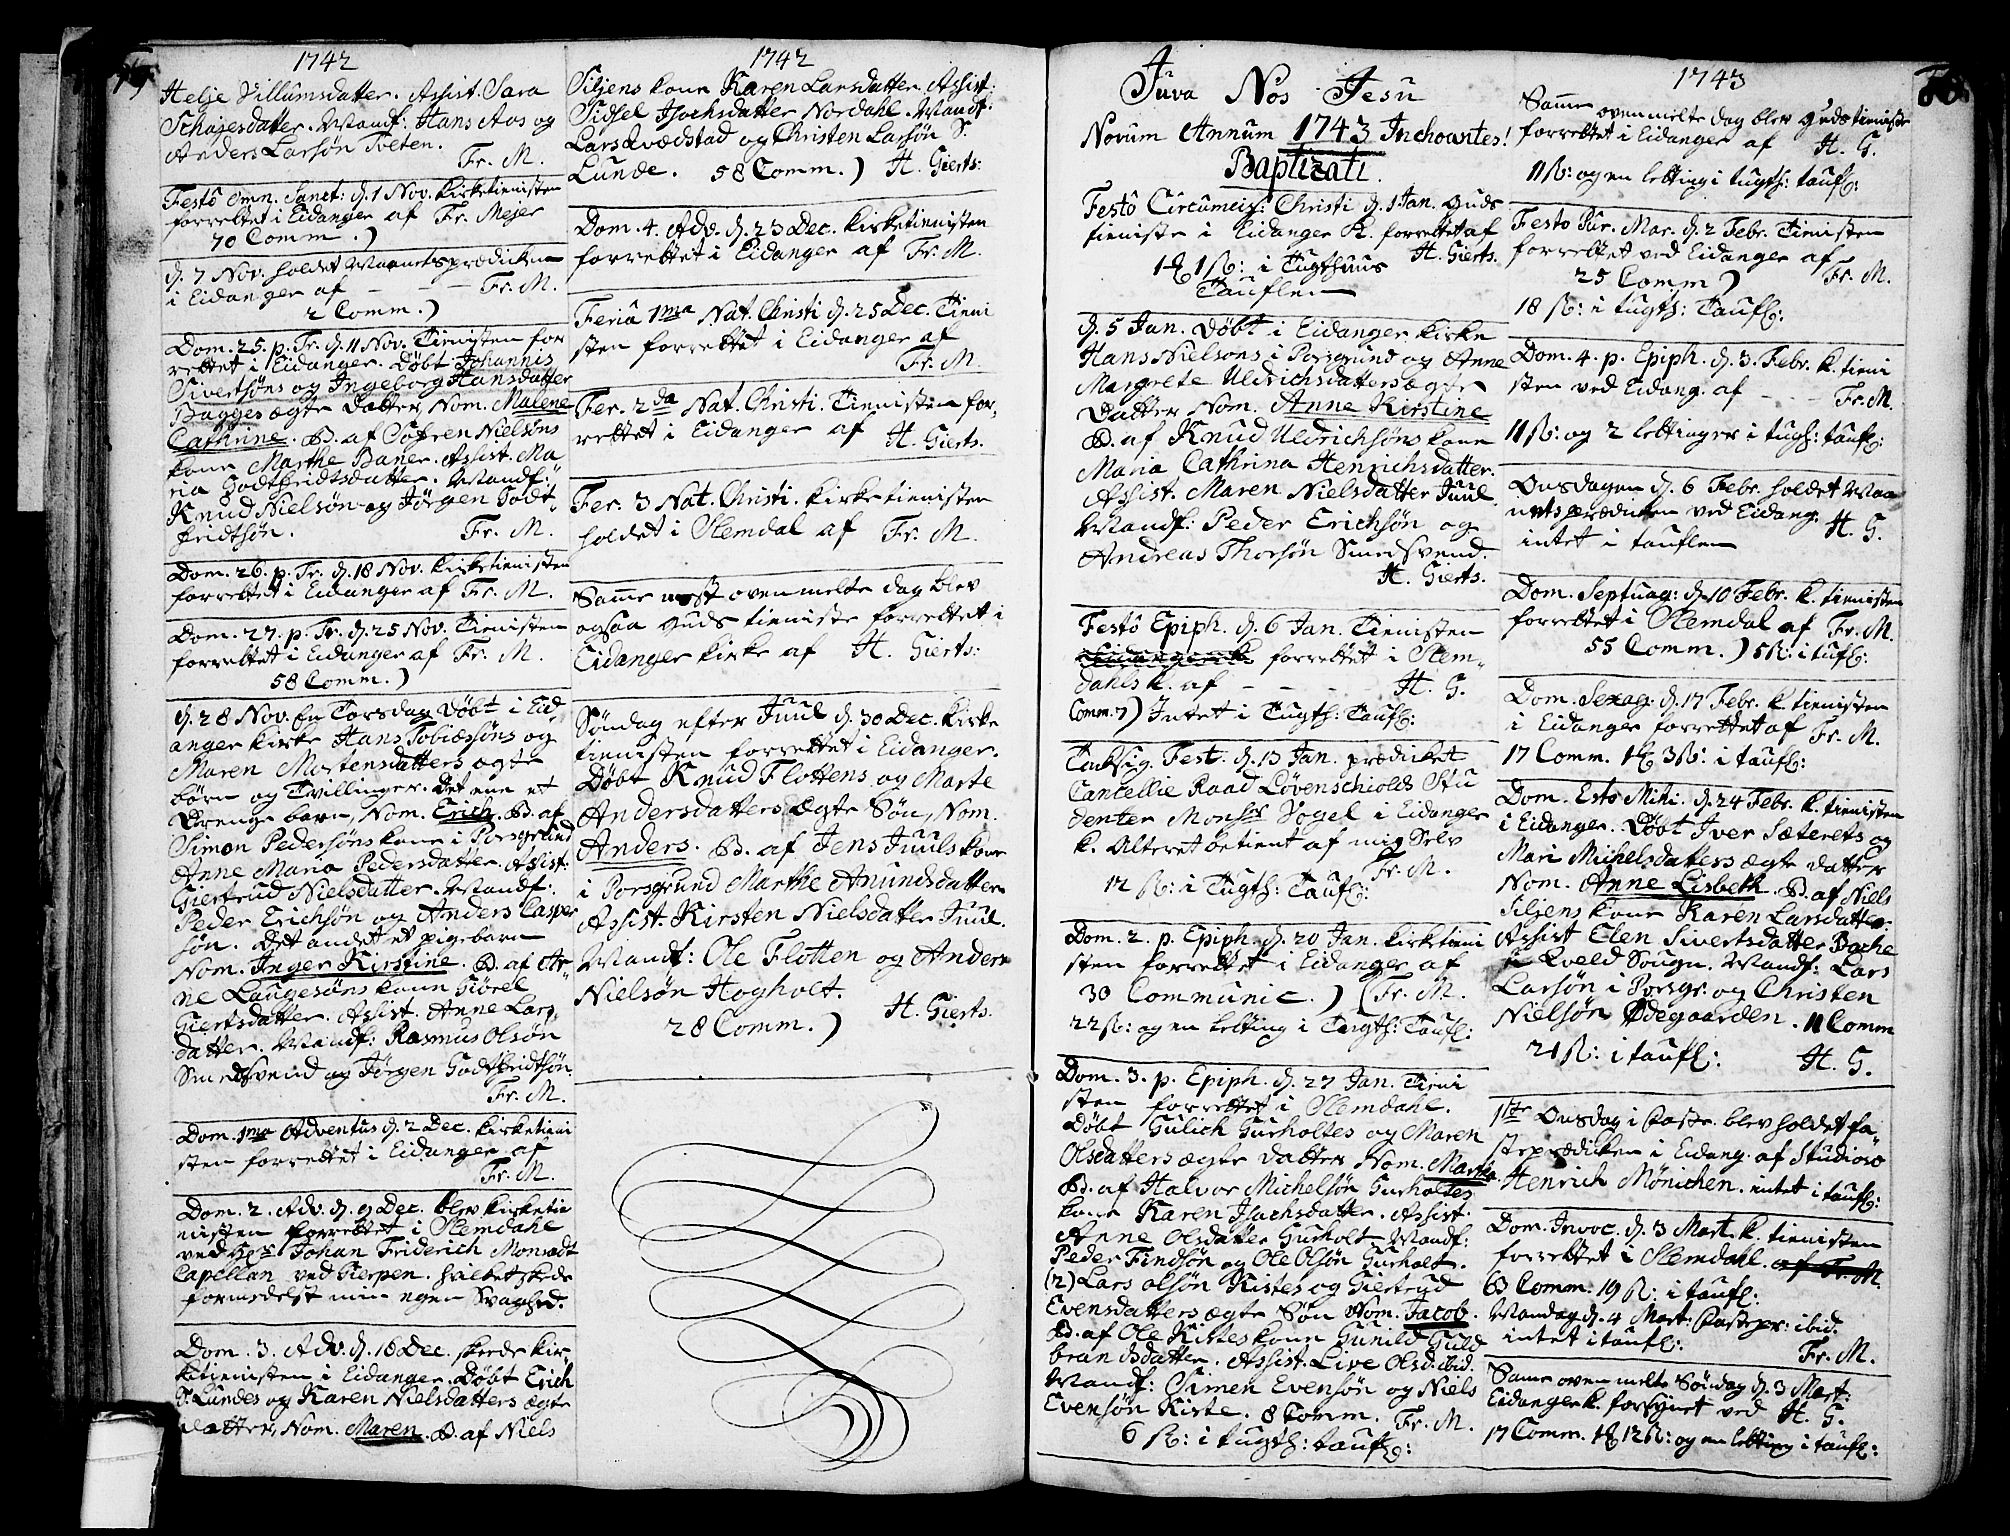 79.
1742
Helje Villumsdatter. Assist. Sara
Schajesdatter. Mandf: Hans Aos og
Anders Larsøn Tveten.
Fr. M.
Festô Omn. Sanct: d. 1 Nov. Kirketienisten
forrettet i Eidanger af Fr. Mejer
70 Comm.)
d. 7 Nov. holdet Maanetsprædicken
i Eidanger af - - - Fr. M.
2 Comm.)
Dom. 25. p. Tr. d. 11 Nov. Tienisten for
rettet i Eidanger. Døbt Johannis
Sivertsøns og Ingeborg Hansdatter
Bagges ægte Datter, Nom. Malene
Cathrine. B. af Søfren Nielsøns
kone Marthe Baner. Assist. Ma
ria Godtfridtsdatter. Mandf:
Knud Nielsøn og Jørgen Godt
fridtsøn.
Fr. M.
Dom. 26. p. Tr. d. 18 Nov. Kirketienisten
forrettet i Eidanger af Fr. M.
Dom. 27. p. Tr. d. 25 Nov. Tienisten
forrettet i Eidanger af Fr. M.
58 Comm.)
d. 28 Nov. En Torsdag Døbt i Eid
anger kirke Hans Tobiæsøns og
Maren Mortensdatters ægte
børn og Tvillinger. Det ene et
Drenge barn, Nom. Erich. B. af
Simon Pedersøns kone i Porsgrund
Anne Maria Pedersdatter. Assist:
Giertrud Nielsdatter. Mandf:
Peder Erichsøn og Anders Casper
søn. Det andet et pigebarn
Nom. Inger Kirstine. B. af Ar-
ne Laugesøns kone Giørel
Giertsdatter. Assist. Anne Lars
datter. Mandf: Rasmus Olsøn
Smedsvend og Jørgen Godtfridtsøn.
Fr. M.
Dom. 1ma Adventus d. 2 Dec. Kirketieni
sten forrettet i Eidanger af
Fr. M.
Dom. 2. Adv. d. 9 Dec. blev kirketie
nisten forrettet i Slemdahl
ved Hr Johan Friderich Monradt
Capellan ved Gierpen. hvilket skede
formedelst min egen Svaghed.
Dom. 3. Adv. d. 16 Dec. skede kir
ketienisten i Eidanger. Døbt Erich
P. Lundes og Karen Nielsdatters ægte
Datter, Nom. Maren. B. af Niels
1742
Siljens kone Karen Larsdatter. Assist:
Sidsel Isachsdatter Nordahl. Mandf:
Lars Qvædstad og Christen Larsøn S.
Lunde. 58 Comm.) H. Gierts:
Dom. 4. Adv. d. 23 Dec. Kirketienisten
forrettet i Eidanger af Fr. M.
Feriâ 1ma Nat. Christi d. 25 Dec. Tieni
sten forrettet i Eidanger af
Fr. M.
Fer. 2da Nat. Christi. Tienisten for-
rettet i Eidanger af H. Gierts.
Fer. 3 Nat. Christi. Kirketienisten
holdet i Slemdal af Fr. M.
Samme ovenmelte dag blev
ogsaa Guds tieniste forrettet i
Eidanger kirke af H. Gierts:
Søndag efter Juul d. 30 Dec. Kirke
tienisten forrettet i Eidanger.
Døbt Knud Flottens og Marte
Andersdatters ægte Søn, Nom.
Anders. B. af Jens Juuls kone
i Porsgrund Marthe Anundsdatter
Assist. Kirsten Nielsdatter Juul.
Mandf: Ole Flotten og Anders
Nielsøn Hogholt.
H. Gierts.
28 Comm.)
Juva Nos Jesu
Novum Annum 1743 Inchoantes!
Baptizati.
Festô Circumcis: Christi d. 1 Jan. Guds
tieniste i Eidanger K. forrettet af
H. Gierts.
1 ß: i Tugthuus
Taufle.
d. 5 Jan. Døbt i Eidanger kirke
Hans Nielsøns i Porsgrund og Anne
Margrete Uldrichsdatters ægte
Datter Nom. Anne Kirstine
B. af Knud Uldrichsøns kone
Maria Cathrina Henrichsdatter.
Assist. Maren Nielsdatter Juul
Mandf: Peder Erichsøn og
Andreas Thorsøn Smedsvend.
H. Gierts.
Festô Epiph. d. 6 Jan. Tienisten
forrettet i Slem-
dahls k. af - - - H. G.
Comm. 7) Intet i Tugth: Taufl:
Tacksig. Fest. d. 13 Jan. prædicket
Cancellie Raad Løvenschiolds Stu
denter Monsr Vogel i Eidanger
k. Alteret betient af mig Selv
Fr. M.
12 ß: i Tugth: Taufl:
Dom. 2. p. Epiph. d. 20 Jan. Kirketieni
sten forrettet i Eidanger af
30 Communic.) (Fr. M.
22 ß: og en letting i Tugth: Taufl:
Dom. 3. p. Epiph. d. 27 Jan. Tieni
sten forrettet i Slemdahl.
Døbt Gulich Gurholtes og Maren
Olsdatters ægte Datter Nom. Martha.
B. af Halvor Michelsøn Gurholtes
kone Karen Isachsdatter. Assist.
Anne Olsdatter Gurholt. Mandf:
Peder Findsøn og Ole Olsøn Gurholt.
(2) Lars Olsøn Kistes og Giertrud
Evensdatters ægte Søn Nom. Jacob.
B. af Ole Kistes kone Gunild Guld
brandsdatter. Assist. Live Olsd. ibid.
Mandf: Simen Evensøn og Niels
Evensøn Kiste. 8 Comm. Fr. M.
6 ß: i tugth: taufl:
80.
1743
Samme ovenmelte dag blev Gudstieniste
forrettet i Eidanger af H. G.
11 ß: og en letting i tugth: taufl:
Festo Pur. Mar. d. 2 Febr. Tienisten
forrettet ved Eidanger af
25 Comm) Fr. M.
18 ß: i tugth: Taufl:
Dom. 4. p. Epiph. d. 3. Febr. k. tieni
sten ved Eidang. af - - - Fr. M.
11 ß: og 2 lettinger i tugth: taufl:
Onsdagen d. 6 Febr. holdet Maa
netsprædicken ved Eidang. H. G.
intet i tauflen
Dom. Septuag: d. 10 Febr. k. tienisten
forrettet i Slemdal af Fr. M.
55 Comm.) 5 ß: i tufl:
Dom. Sexag: d. 17 Febr. k. tienisten
i Eidanger forrettet af Fr. M.
17 Comm. 3 ß: i taufl:
Dom. Esto Mihi. d. 24 Febr. k. tienisten
i Eidanger. Døbt Iver Sæterets og
Mari Michelsdatters ægte datter
Nom. Anne Lisbeth. B. af Niels
Siljens kone Karen Larsdatter.
Assist Elen Sivertsdatter Bache
i Qveld Sougn. Mandf: Lars
Larsøn i Porsgr. og Christen
Nielsøn Ødegaarden. 11 Comm
21 ß: i taufl: H. G.
1ste Onsdag i Faste. blev holdet fa-
steprædicken i Eidang. af Studioso
Henrich Mönichen. intet i taufl:
Dom. Invoc. d. 3 Mart. k. tienisten
forrettet i Slemdahl. af Fr. M.
63 Comm. 19 ß: i taufl:
Mandag d. 4 Mart: Fastepr: ibid.
intet i taufl: Fr. M.
Samme ovenmelte Søndag d. 3 Mart:
Eidanger k. forsynet ved H. G.
17 Comm. 12 ß: og en letting i taufl: